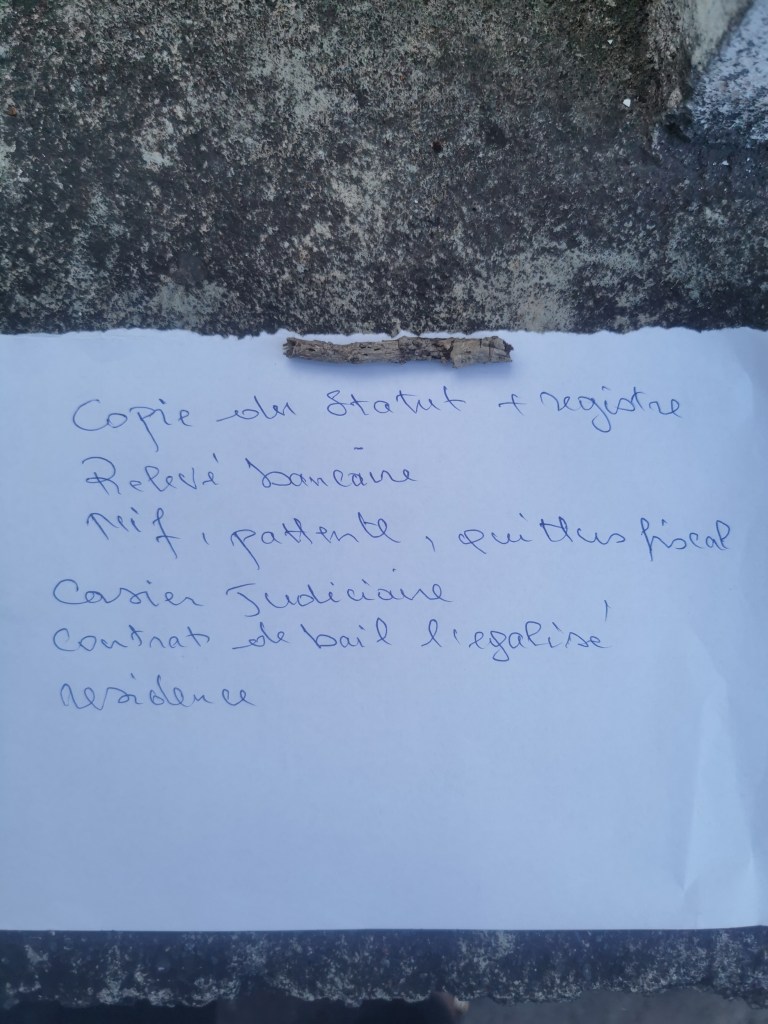 Copie du statut + registre
Relevé bancaire
Nif, pattente, quittus fiscal
Casier Judiciaire
Contrat de bail légalisé
residence